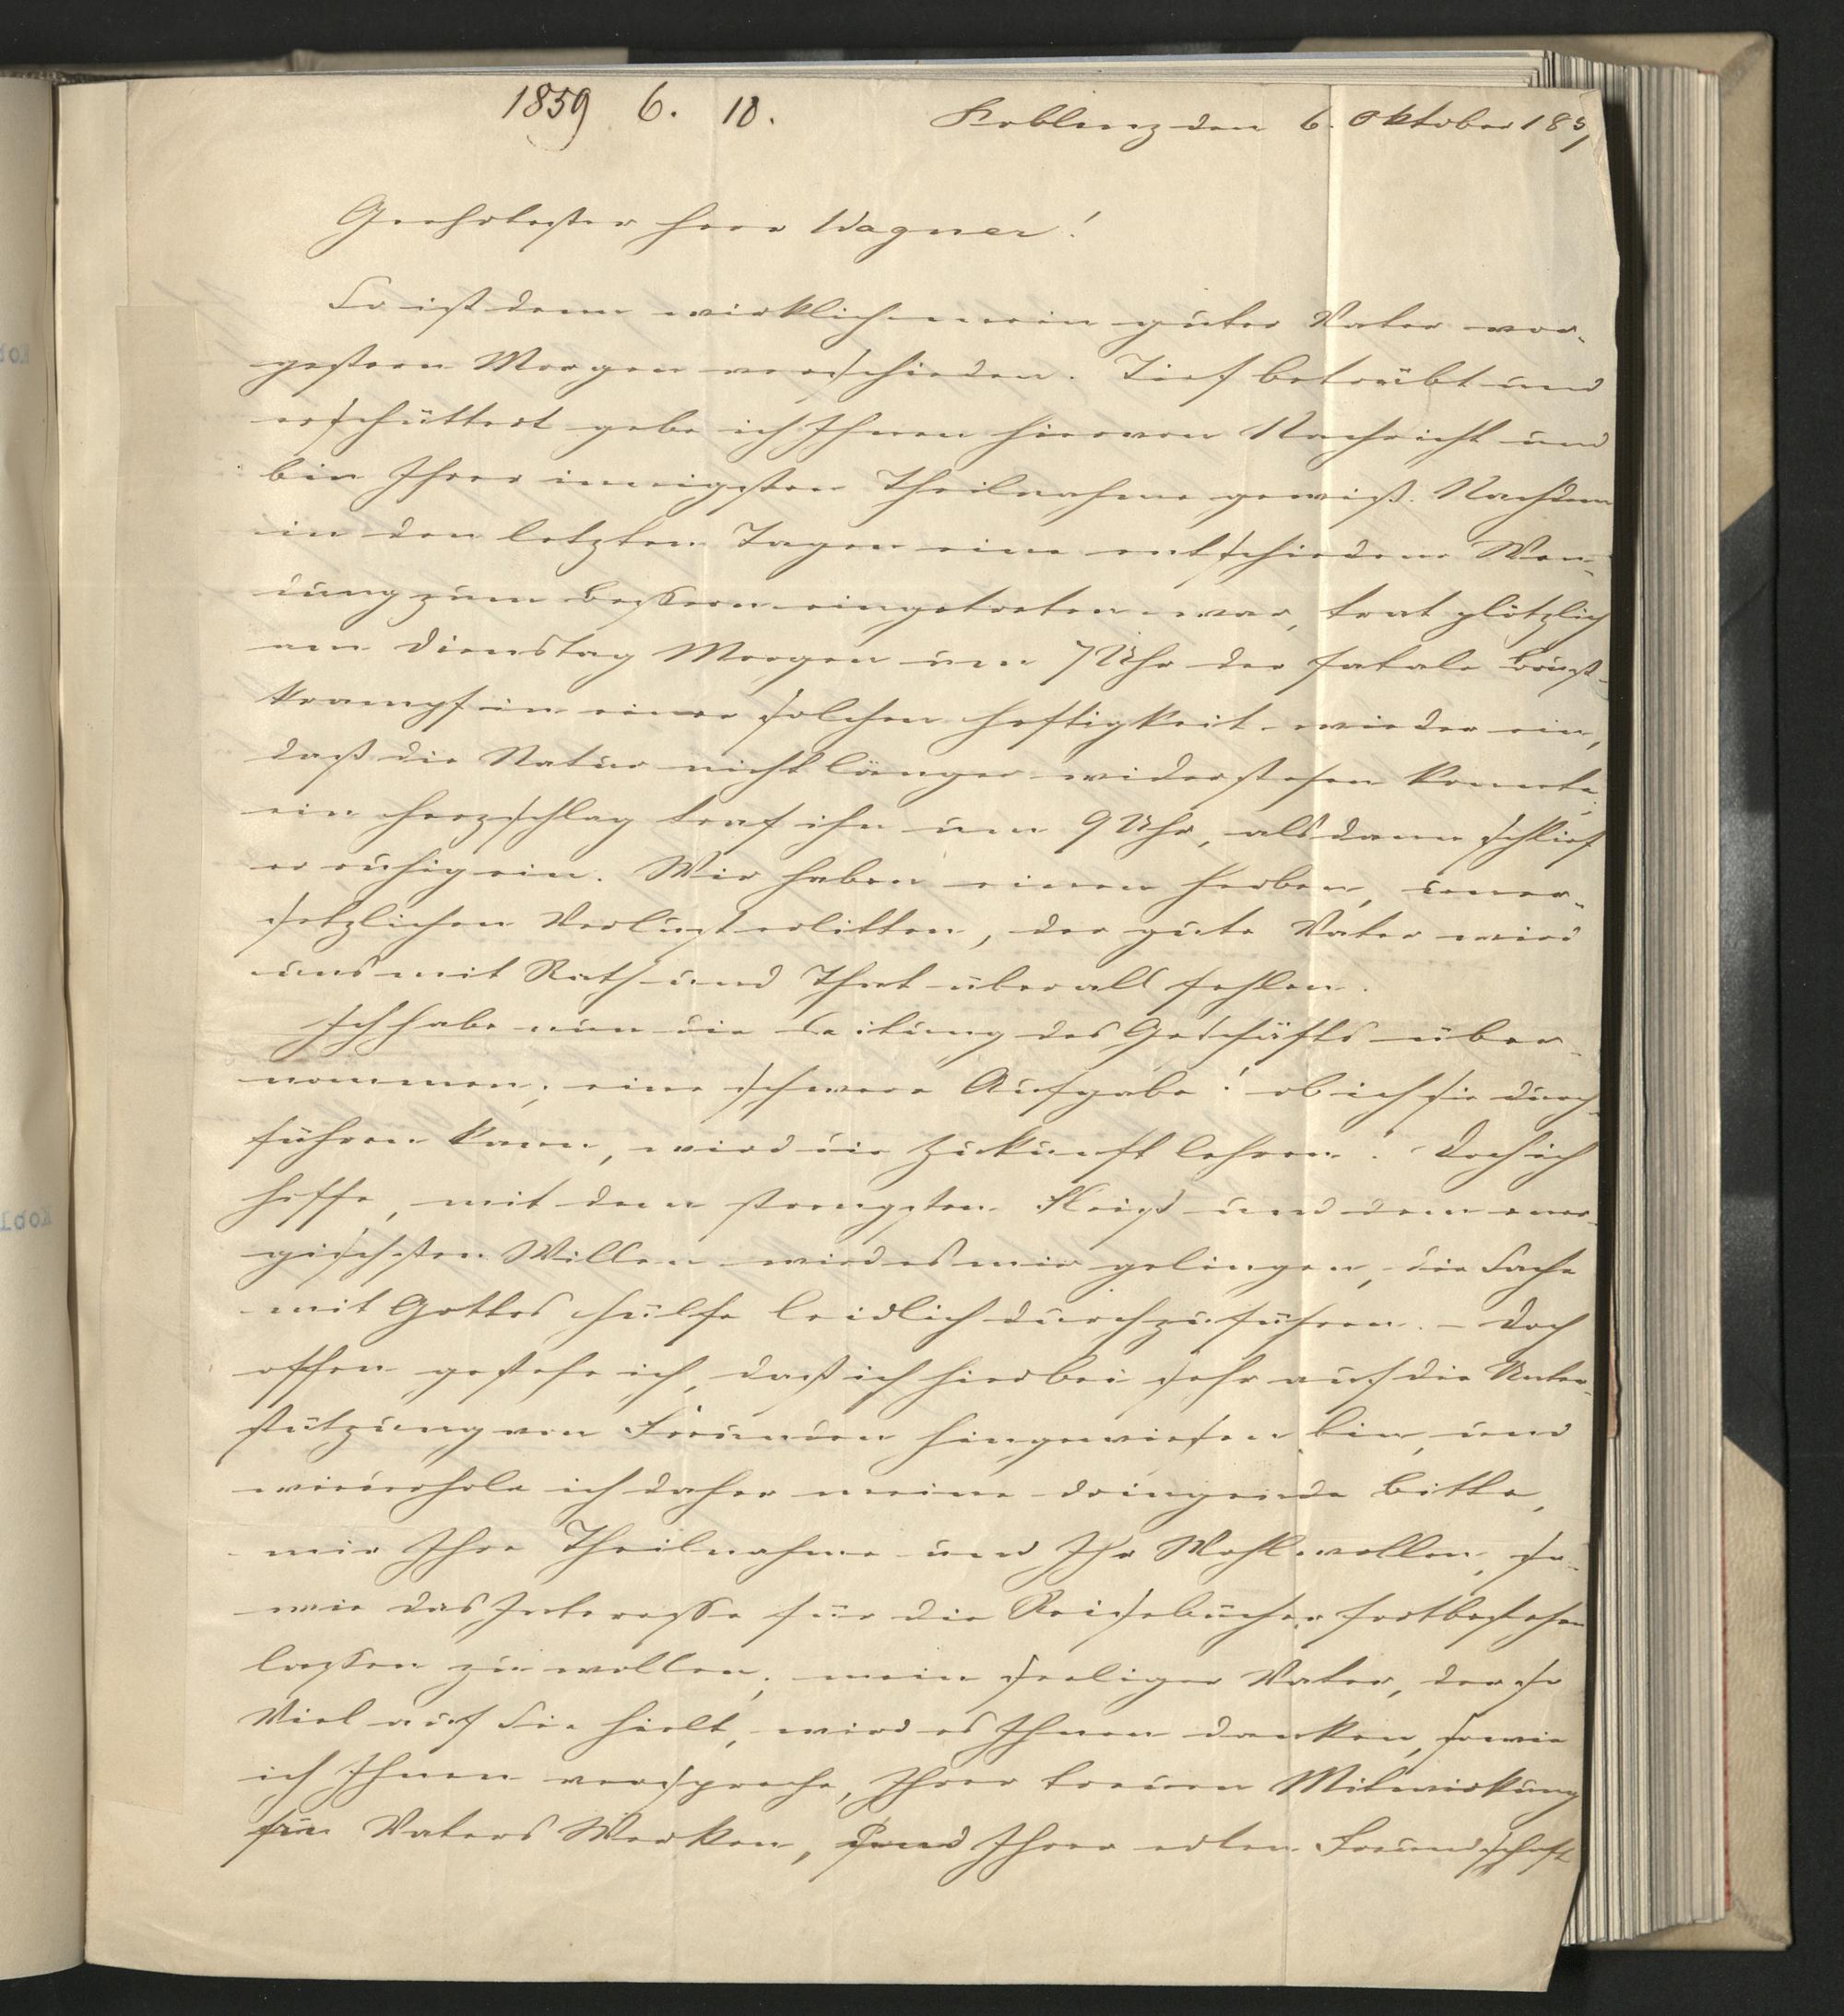 1859 6. 10.
Koblenz den 6. Oktober 185
Geehrtester Herr Wagner!
So ist denn wirklich mein guter Vater vor-
gestern Morgen verschieden. Tief betrübt und
erschüttert gebe ich Ihnen hiervon Nachricht und
bin Ihrer innigsten Theilnahme gewiß. Nachdem
in den letzten Tagen eine entschiedene Wen-
dung zum Bessern eingetreten war, trat plötzlich
am Dienstag Morgen um 7 Uhr der fatale Brust-
krampf in einer solchen Heftigkeit wieder ein,
daß die Natur nicht länger widerstehen konnte,
ein Herzschlag traf ihn um 9 Uhr, alsdann schlief
er ruhig ein. Wir haben einen herben, uner-
setzlichen Verlust erlitten, der gute Vater wird
uns mit Rath und That überall fehlen.
Ich habe nun die Leitung des Geschäfts über-
nommen; eine schwere Aufgabe! ob ich sie durch-
führen kann, wird die Zukunft lehren! Doch ich
hoffe, mit dem strengsten Fleiß und dem ener-
gischsten Willen wird es mir gelingen, die Sache
mit Gottes Hülfe leidlich durchzuführen. – Doch
offen gestehe ich, daß ich hierbei sehr auf die Unter-
stützung von Freunden hingewiesen bin, und
wiederhole ich daher meine dringende Bitte,
mir Ihre Theilnahme und Ihr Wohlwollen, so-
wie das Interesse für die Reisebücher fortbestehen
lassen zu wollen; mein seeliger Vater, der so
Viel auf Sie hielt, wird es Ihnen danken, sowie
ich Ihnen verspreche, Ihrer treuen Mitwirkung
für Vaters Werken, und Ihrer edlen Freundschaft